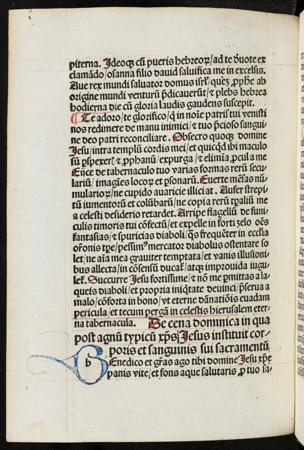 piterna. Ideoq; cū pueris hebreoꝝ/ad te ðuote ex
clamādo/osanna filio dauid saluifica me in excelsis.
Aue rex mundi saluator domus isrl' queꝫ ꝓphe ab
origine mundi venturū p̄dicauerūt/⁊ plebs hebrea
hodierna die cū gloria laudis gaudens suscepit.
Te adoro/te glorifico/q̄ in noīe patris tui venisti
nos redimere de manu inimici/⁊ tuo p̄cioso sangui
ne deo patri reconciliare. Obsecro quoqꝫ domine
Jesu/intra templū cordis mei/et quicqd ibi maculo
sū ꝓspexeris/ ⁊ ꝓphanū/expurga/⁊ elimīa ꝓcul a me
Eijce de tabernaculo tuo varias formas rerū secu
lariū/imagīes locoꝝ et ꝑsonarū. Euerte mēsas nū
mularioꝝ/ne cupido auaricie illiciat. Aufer strepi
tū iumentorū et colūbarū/ne copia rerū tꝑaliū me
a celesti desiderio retardet. Arripe flagellū de funi
culis timoris tui cōfectū/et expelle in forti zelo oēs
fantasias/⁊ spuricias diaboli/q̄s frequēter in eccīa
orōnis tꝑe/pessim⁹ mercator diabolus ostentare so
let/ne aīa mea grauiter temptata/et vanis illusioni
bus allecta/in cōsensū ducat̄/atqꝫ improuida iugu
let̄. Succurre Jesu fortissime/⁊ nō me ꝑmittas a la
queis diaboli/et propria iniq̄tate deuinci/ꝑserua a
malo/cōforta in bono/vt eterne dānatiōis euadam
pericula/et tecum pergā in celestis hierusalem eter
na tabernacula. De cena dominica in qua
post agnū typicū xp̄s Jesus instituit cor
poris et sanguinis sui sacramentū
b Enedico et gr̄as ago tibi domine Jesu xp̄e
panis vite/et fons aque salutaris ꝓ tuo sa-